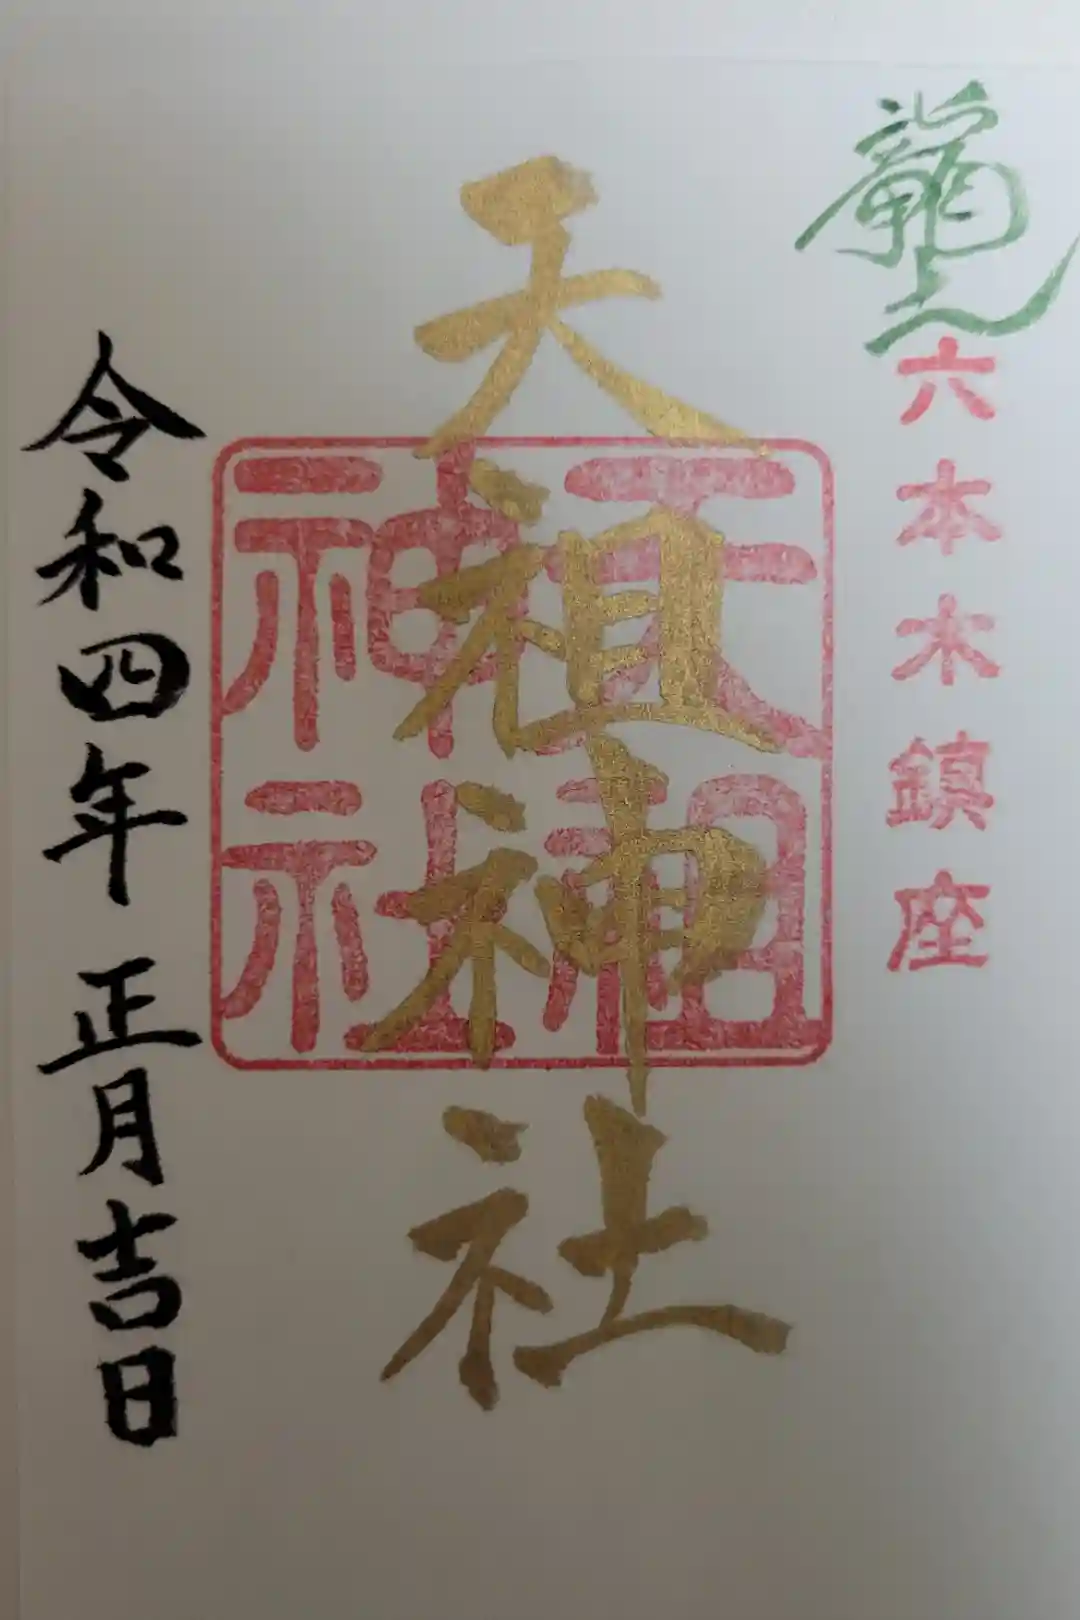 龍土
六本木鎮座
天祖神社
天祖神社
令和四年正月吉日